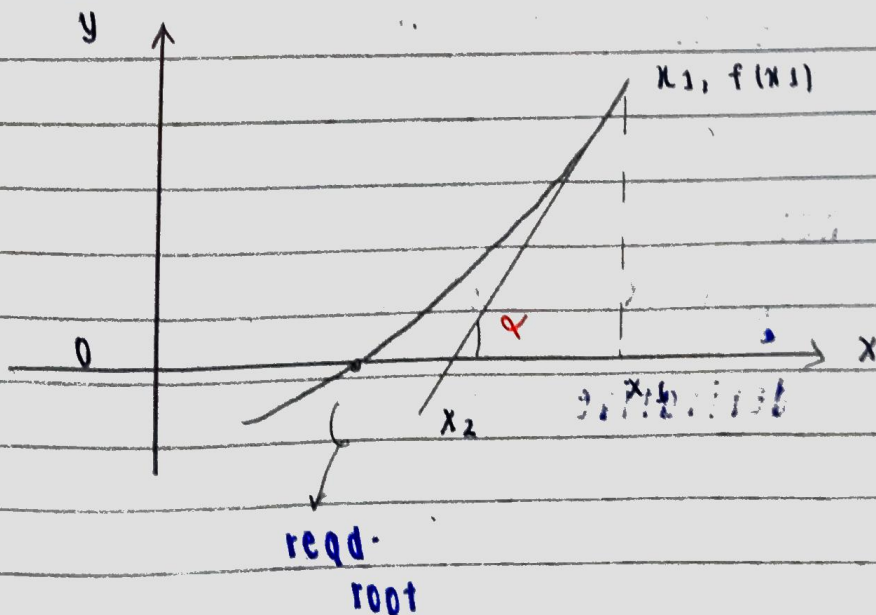 y
x1, f(x1)
α
0
x
x1
x2
reqd.
root